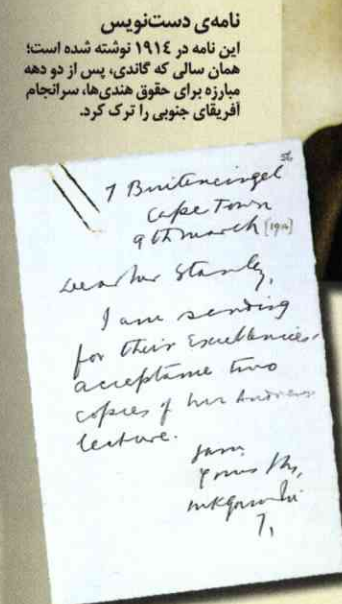 نامه‌ی دست‌نویس
این نامه در ۱۹۱٤ نوشته شده است؛
همان سالی که گاندی، پس از دو دهه
مبارزه برای حقوق هندی‌ها، سرانجام
آفریقای جنوبی را ترک کرد.
7 Buitencingel
Cape Town
9th March
Dear Mr Stanley,
I am sending
for their Excellencies'
acceptance two
copies of Mr Andrews
lecture.
I am
Yours
MKGandhi